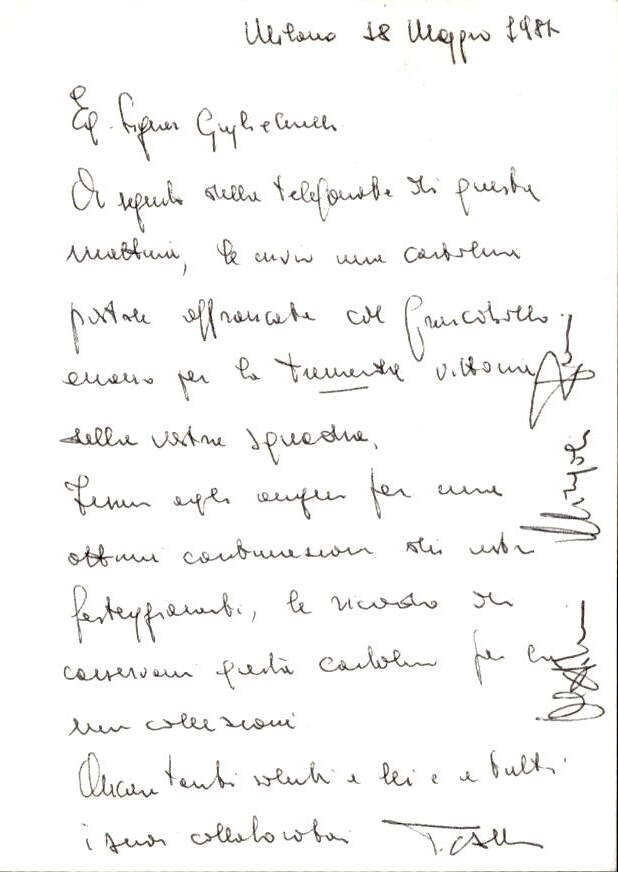 Milano 18 Maggio 1987
Eg. Signor Guglielmelli
A seguito della telefonata di questa
mattina, le invio una cartolina
postale affrancata col francobollo
emesso per la tremenda vittoria
della vostra squadra.
Fermi agli auguri per una
ottima continuazione dei vostri
festeggiamenti, le ricordo di
conservare questa cartolina per la
mia collezione
Ancora tanti saluti a lei e a tutti
i suoi collaboratori